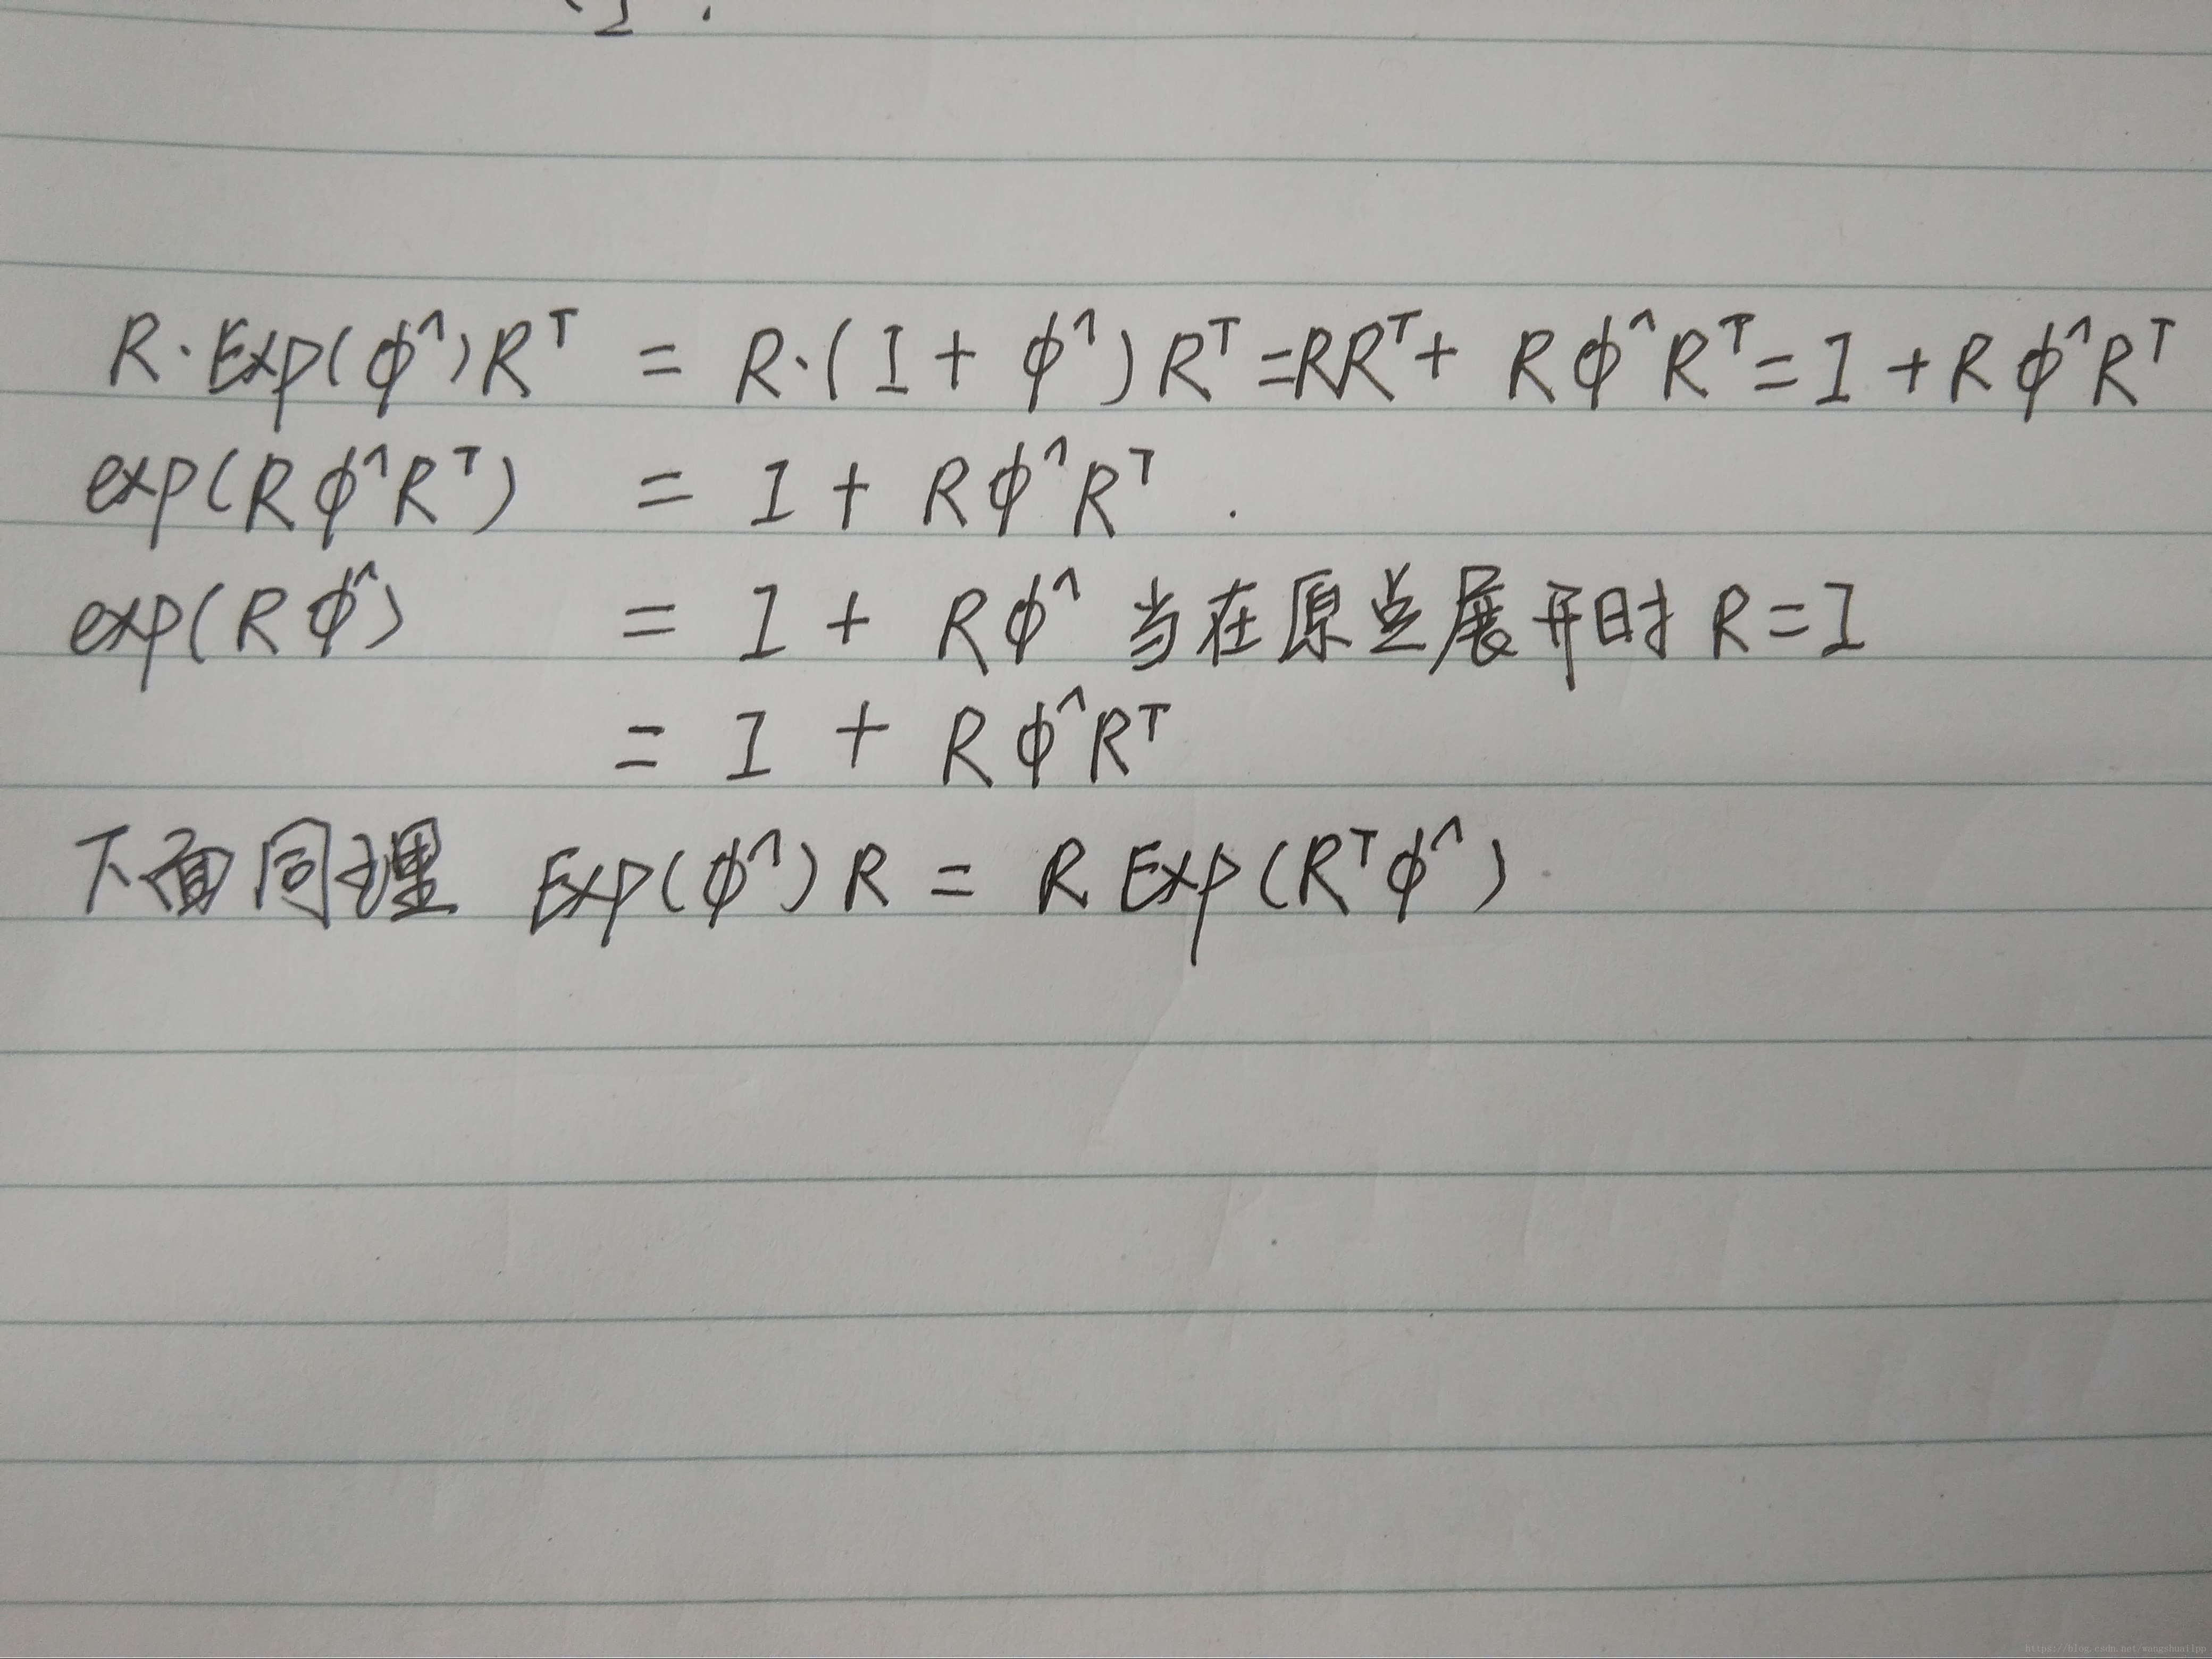 R·Exp(ϕ^)Rᵀ = R·(I + ϕ^)Rᵀ = RRᵀ + Rϕ^Rᵀ = I + Rϕ^Rᵀ
exp(Rϕ^Rᵀ) = I + Rϕ^Rᵀ.
exp(Rϕ^) = I + Rϕ^ 当在原点展开时 R = I
= I + Rϕ^Rᵀ
下面同理 Exp(ϕ^)R = R Exp(Rᵀϕ^)
https://blog.csdn.net/wangshuailpp